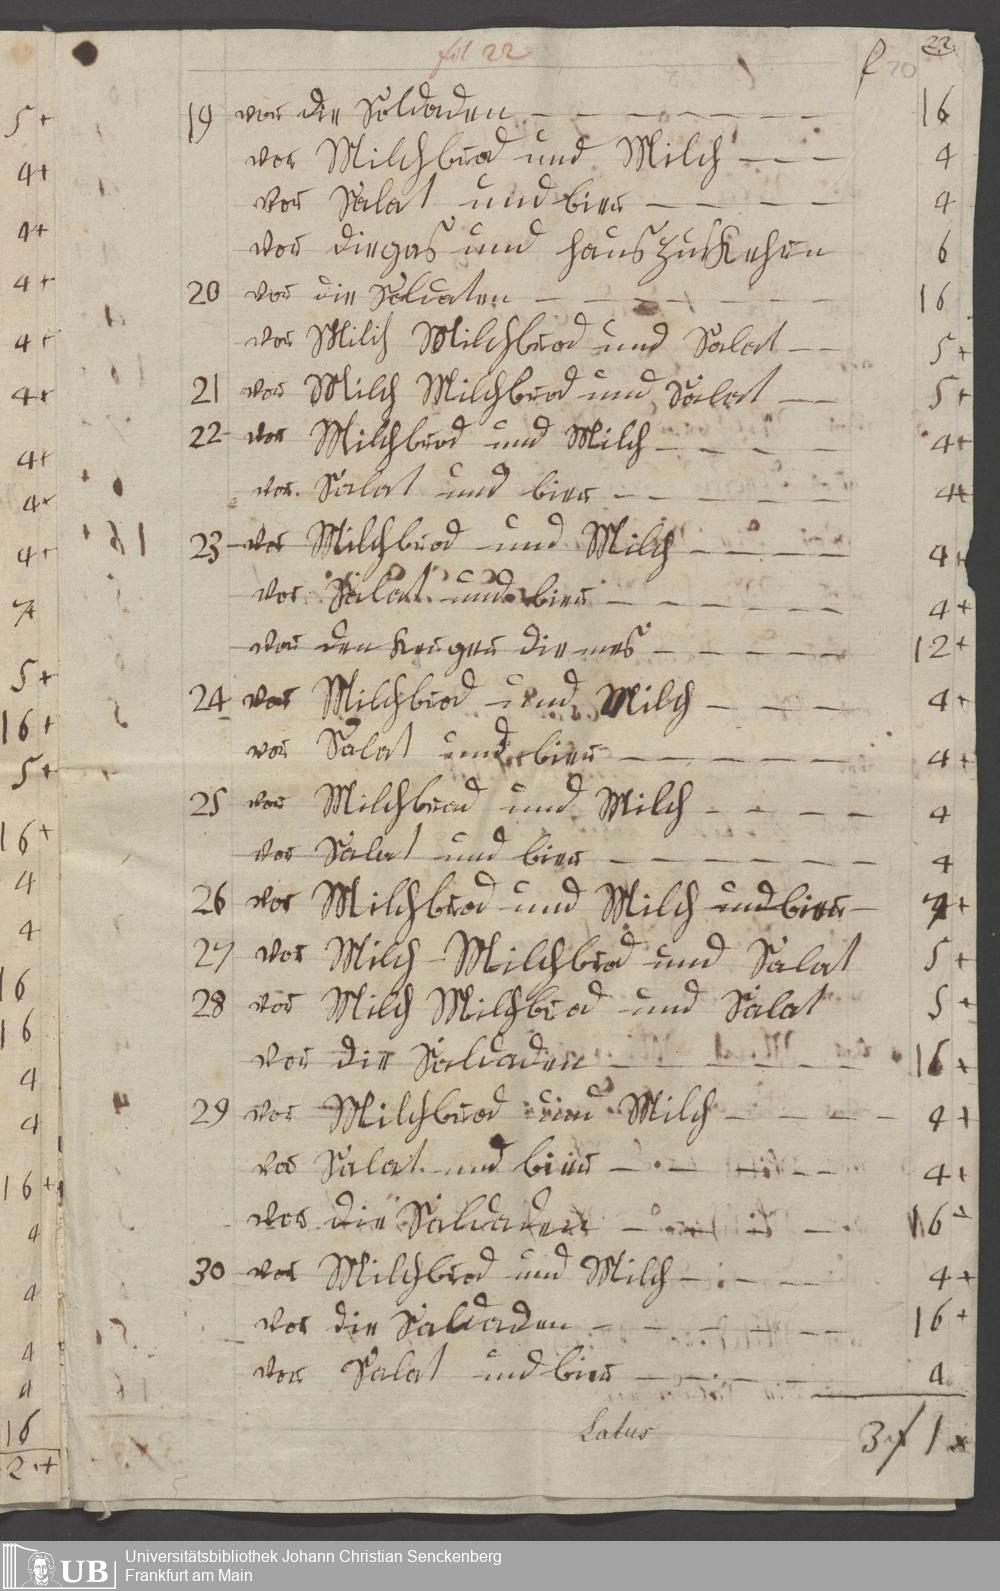 fol 22
22
f 20
5+
4+
4+
4+
4+
4+
4+
4+
4+
7+
5+
16+
5+
16+
4
4
16
16
4
4
16+
4
4
4
4
16
2+
19 vor die Soldaden — — — — — — 16
vor Milchbrod und Milch — — — 4
vor Salat und bier — — — — 4
vor die gas und haus zu Kehren 6
20 vor die Soldaten — — — — — — 16
vor Milch Milchbrod und Salat — — 5+
21 vor Milch Milchbrod und Salat — — 5+
22 vor Milchbrod und Milch — — — — 4+
vor Salat und bier — — — — — 4+
23 vor Milchbrod und Milch — — — — 4+
vor Salat und bier — — — — — 4+
vor den die mes — — — — — 12+
24 vor Milchbrod und Milch — — — — 4+
vor Salat und bier — — — — — 4+
25 vor Milchbrod und Milch — — — — 4
vor Salat und bier — — — — — — 4
26 vor Milchbrod und Milch und bier — 7+
27 vor Milch Milchbrod und Salat 5+
28 vor Milch Milchbrod und Salat 5+
vor die Soldaden — — — — — — 16+
29 vor Milchbrod und Milch — — — — 4+
vor Salat und bier — — — — — 4+
vor die Soldaden — — — — — 16+
30 vor Milchbrod und Milch — — — — 4+
vor die Soldaden — — — — — — 16+
vor Salat und bier — — — — 4
Latus 3 f 1 x
UB Universitätsbibliothek Johann Christian Senckenberg
Frankfurt am Main